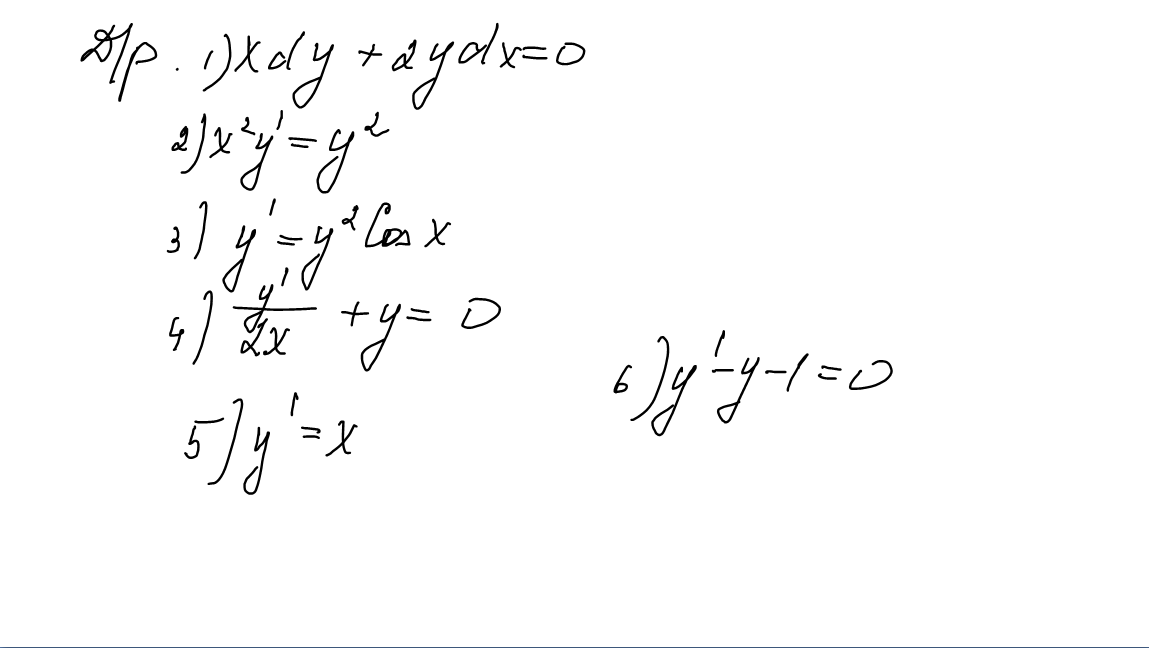 Д/р. 1) x dy + 2y dx = 0
2) x² y' = y²
3) y' = y² Cos x
4) y'/2x + y = 0
5) y' = x
6) y' - y - 1 = 0